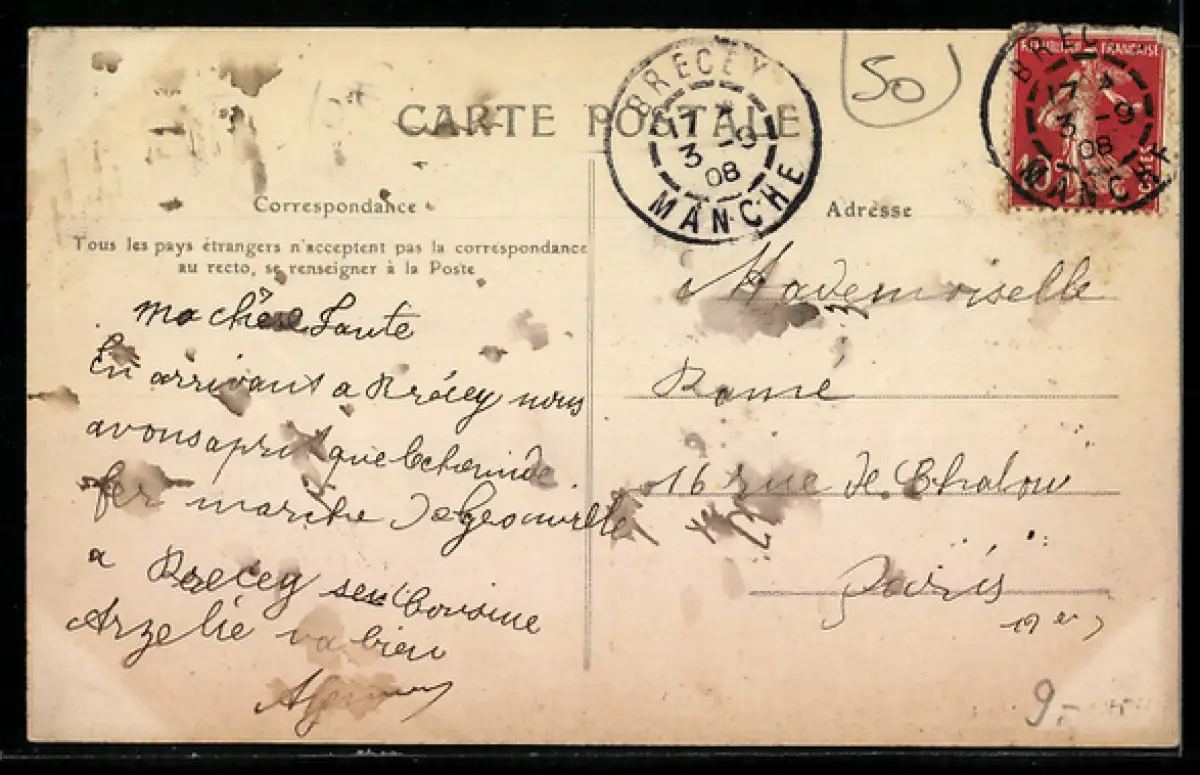 CARTE POSTALE
BRECEY
17 *
3 - 9
08
MANCHE
50
REPUBLIQUE FRANÇAISE
BRECEY
17 *
3 - 9
08
MANCHE
10
Correspondance
Tous les pays étrangers n'acceptent pas la correspondance
au recto, se renseigner à la Poste
ma chère Tante
En arrivant a Brécey nous
avons aprit que le chemin de
fer marche de
a Brecey cousine
va bien
Adresse
Mademoiselle
Ramé
16 rue de Chalon
Paris
9.-